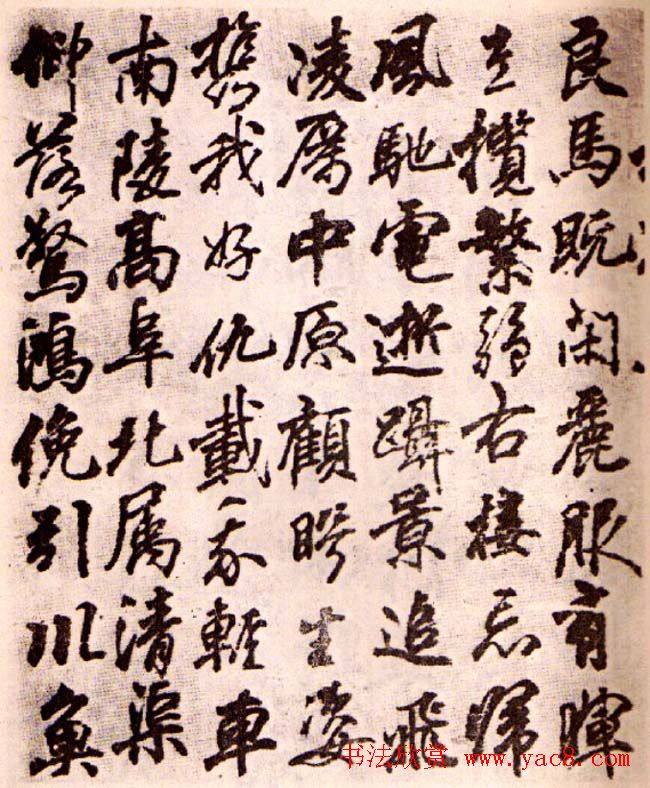 良馬既閑麗服有暉
左攬繁弱右接忘歸
風馳電逝躡景追飛
凌厲中原顧盻生姿
携我好仇載我輕車
南陵髙阜北属清渠
仰落驚鴻俛引川魚
书法欣赏 www.yac8.com